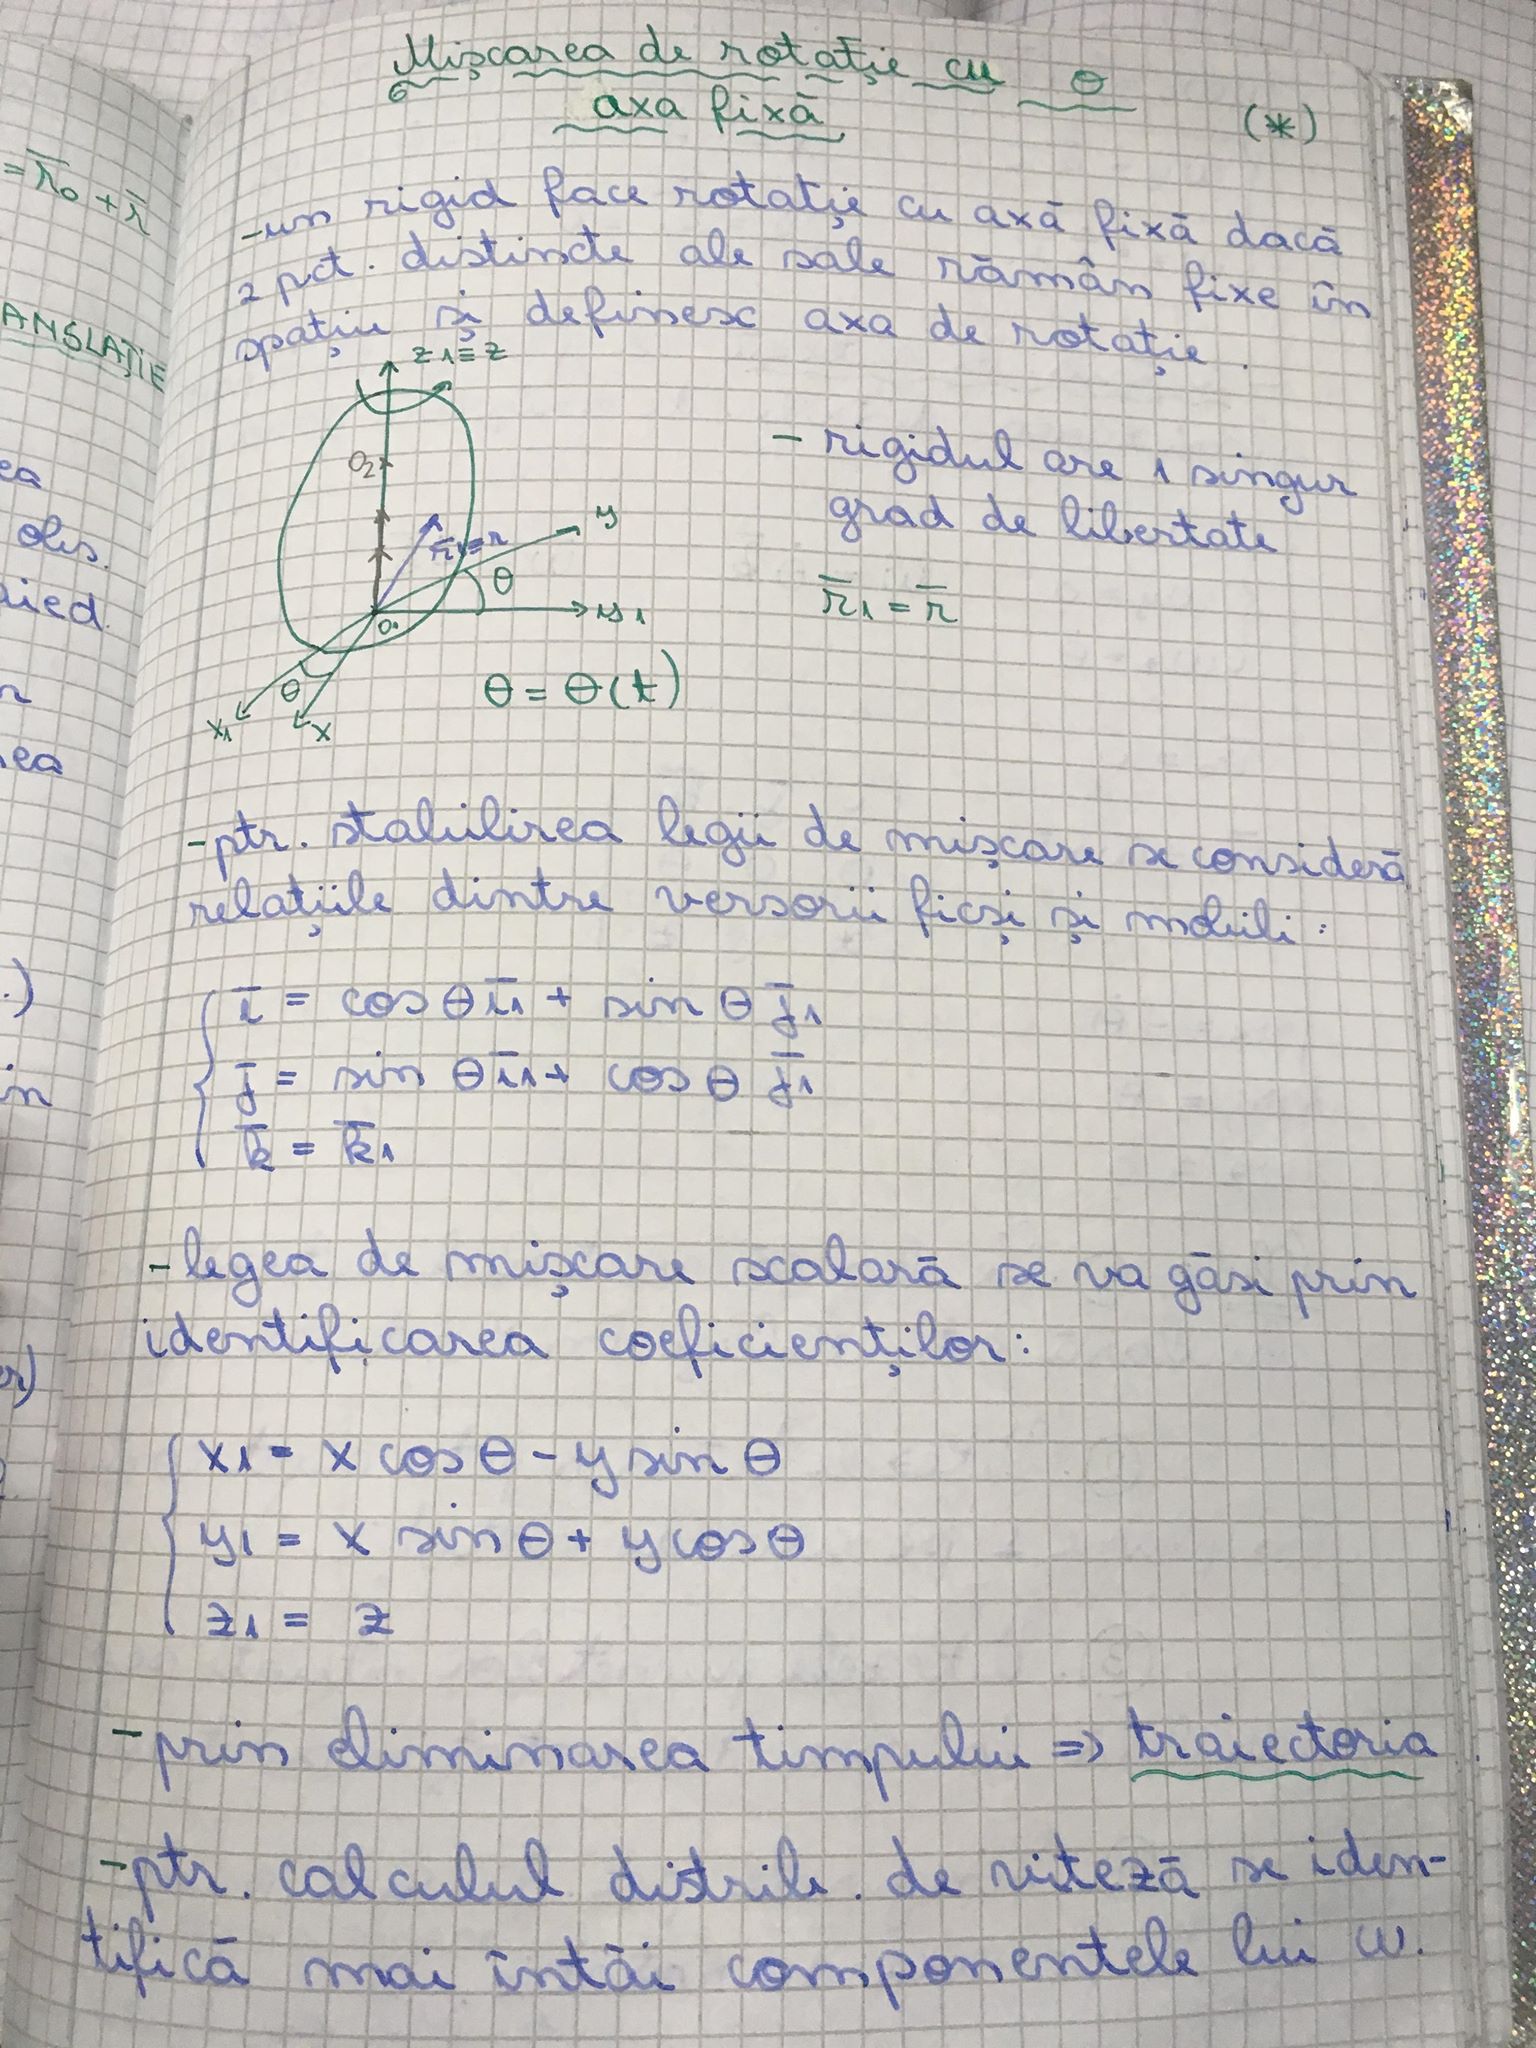 Mișcarea de rotație cu o
axa fixă
(*)
= r̄₀ + r̄
ANSLAȚIE
-un rigid face rotație cu axă fixă dacă
2 pct. distincte ale sale rămân fixe în
spațiu și definesc axa de rotație.
z₁≡z
O₂
r̄₁=r
y
θ
y₁
O₁
θ
x₁
x
θ = θ(t)
- rigidul are 1 singur
grad de libertate
r̄₁ = r̄
ea
obs.
ea
-ptr. stabilirea legii de mișcare se consideră
relațiile dintre versorii ficși și mobili:
ī = cos θ ī₁ + sin θ j̄₁
j̄ = sin θ ī₁ + cos θ j̄₁
k̄ = k̄₁
in
-legea de mișcare scalară se va găsi prin
identificarea coeficienților:
x₁ = x cos θ - y sin θ
y₁ = x sin θ + y cos θ
z₁ = z
-prin eliminarea timpului => traiectoria.
-ptr. calculul distrib. de viteză se iden-
tifică mai întâi componentele lui ω.